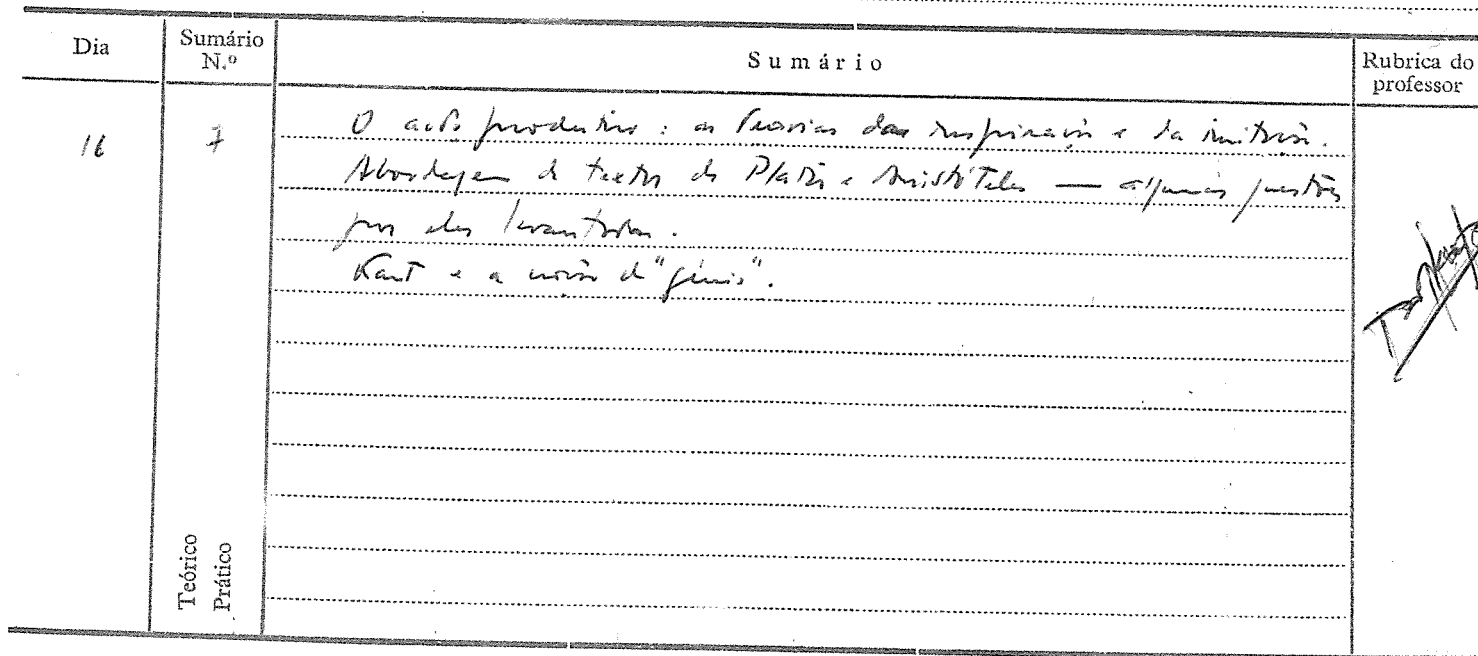 Dia
Sumário N.º
Sumário
Rubrica do professor
16
7
O acto produtivo: as teorias da inspiração e da imitação.
Abordagem de textos de Platão e Aristóteles — algumas questões
por eles levantadas.
Kant e a noção de "génio".
Teórico
Prático